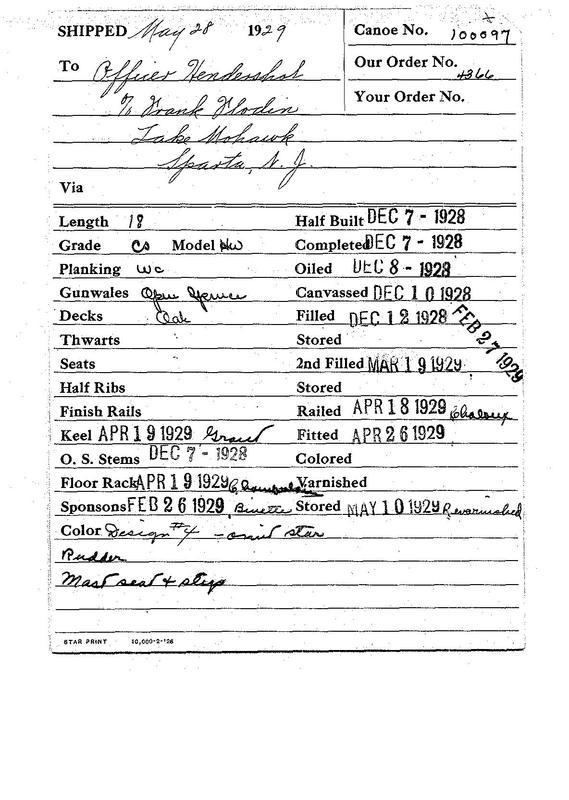 SHIPPED May 28 1929
Canoe No. 100097
To Officer Hendershot
Our Order No. 4366
% Frank Flodin
Your Order No.
Lake Mohawk
Sparta, N. J.
Via
Length 18 Half Built DEC 7 - 1928
Grade CS Model HW Completed DEC 7 - 1928
Planking WC Oiled DEC 8 - 1928
Gunwales Open Spruce Canvassed DEC 10 1928
Decks Oak Filled DEC 12 1928 FEB 27 1929
Thwarts Stored
Seats 2nd Filled MAR 19 1929
Half Ribs Stored
Finish Rails Railed APR 18 1929
Keel APR 19 1929 Fitted APR 26 1929
O. S. Stems DEC 7 - 1928 Colored
Floor Rack APR 19 1929 Varnished
Sponsons FEB 26 1929 Binette Stored MAY 10 1929 Revarnished
Color Design #4 - omit star
Rudder
Mast seat & step
STAR PRINT 10,000-2-'28